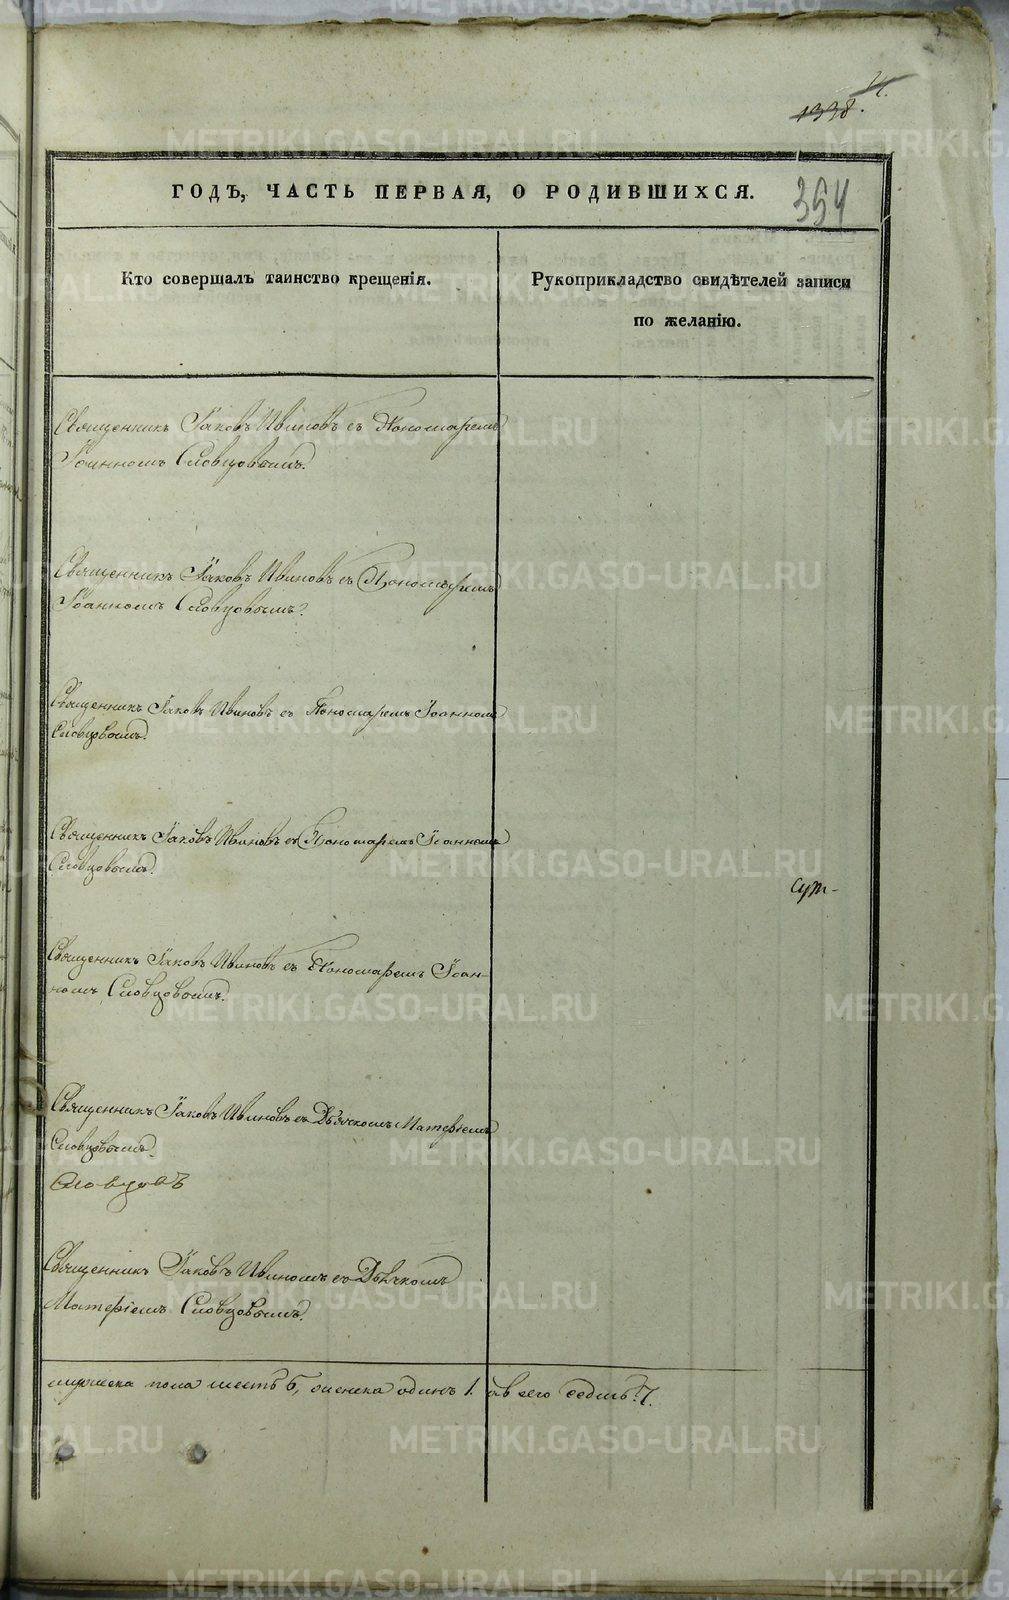 1338.
354
ГОДЪ, ЧАСТЬ ПЕРВАЯ, О РОДИВШИХСЯ.
Кто совершалъ таинство крещенія.
Рукоприкладство свидѣтелей записи
по желанію.
Священникъ Іаковъ Ивановъ съ Пономаремъ
Іоанномъ Словцовымъ.
Священникъ Іаковъ Ивановъ съ Пономаремъ
Іоанномъ Словцовымъ.
Священникъ Іаковъ Ивановъ съ Пономаремъ Іоанномъ
Словцовымъ.
Священникъ Іаковъ Ивановъ съ Пономаремъ Іоанномъ
Словцовымъ.
Священникъ Іаковъ Ивановъ съ Пономаремъ Іоан-
номъ Словцовымъ.
Священникъ Іаковъ Ивановъ съ Дьячкомъ
Словцовымъ.
Словцовъ
Священникъ Іаковъ съ Дьячкомъ
Словцовымъ.
мужеска пола шесть 6, женска одинъ 1. а всего седмь 7.
METRIKI.GASO-URAL.RU